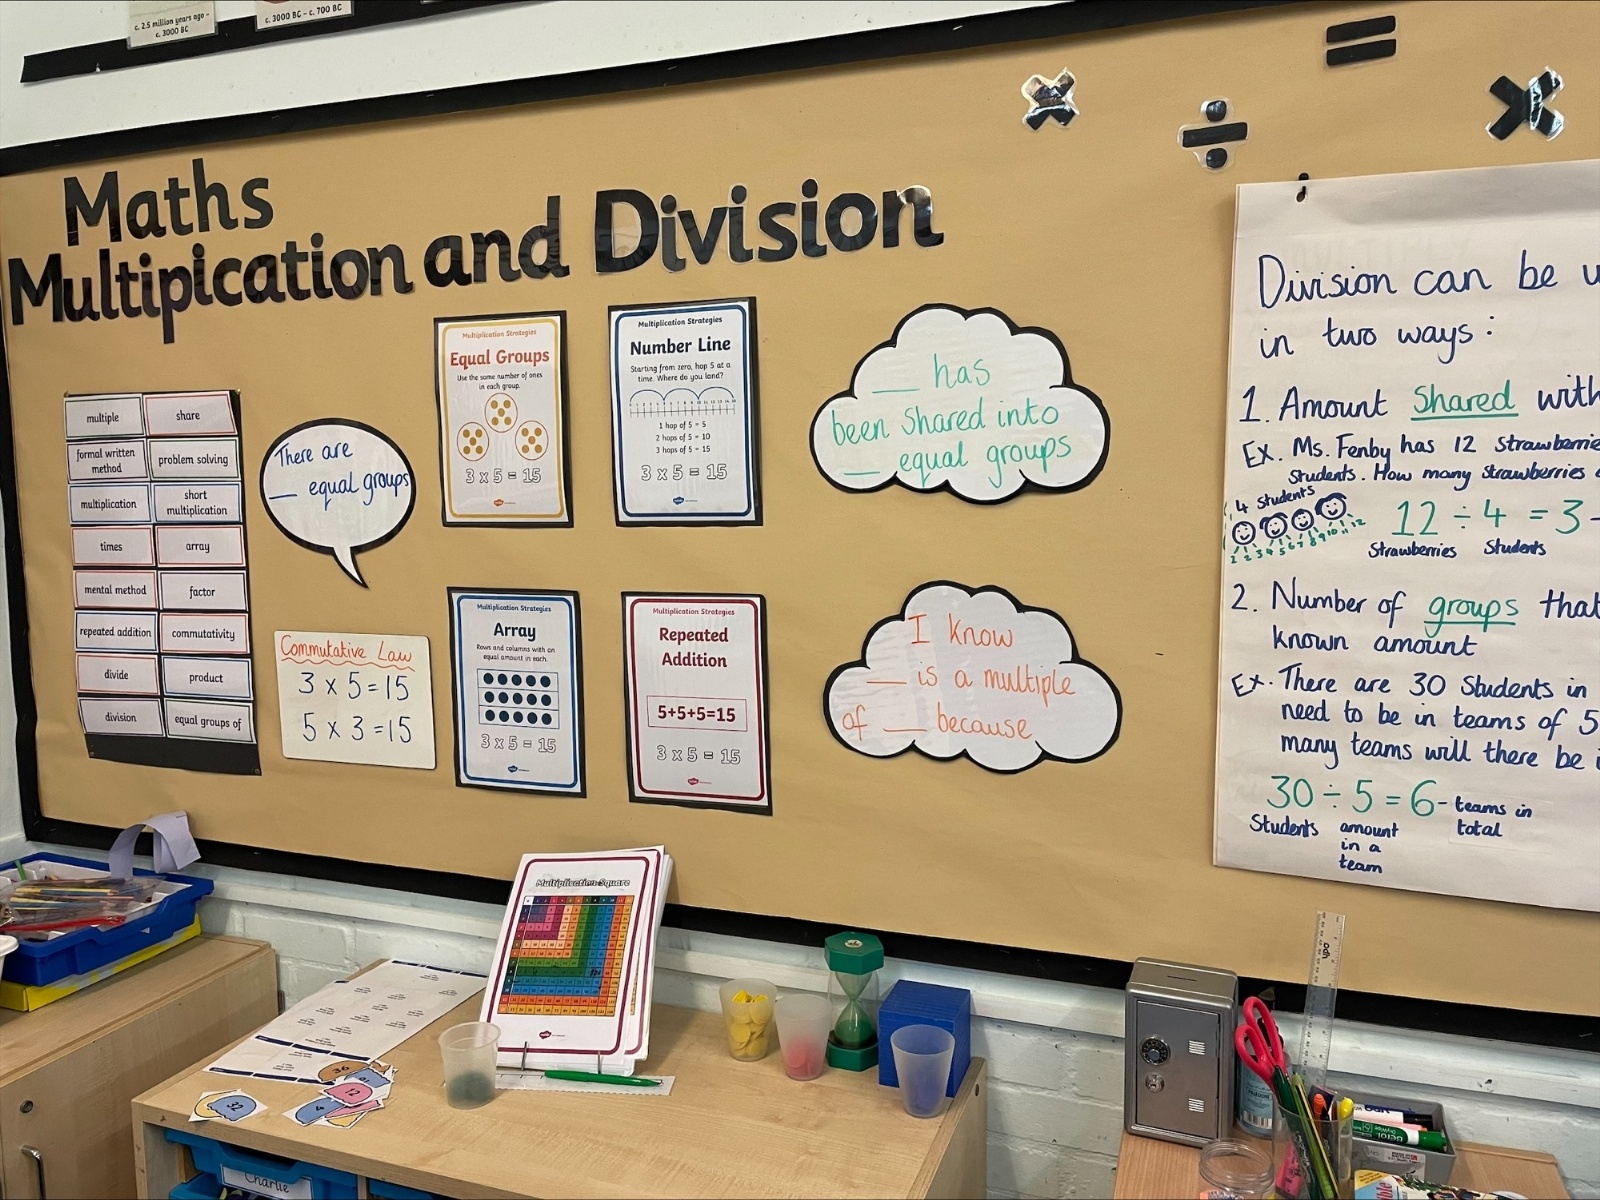 c. 2.5 million years ago -
c. 3000 BC
c. 3000 BC - c. 700 BC
Maths
Multipication and Division
multiple
share
formal written
method
problem solving
multiplication
short
multiplication
times
array
mental method
factor
repeated addition
commutativity
divide
product
division
equal groups of
There are
__ equal groups
Commutative Law
3 x 5 = 15
5 x 3 = 15
Multiplication Strategies
Equal Groups
Use the same number of ones
in each group.
3 x 5 = 15
Multiplication Strategies
Number Line
Starting from zero, hop 5 at a
time. Where do you land?
1 hop of 5 = 5
2 hops of 5 = 10
3 hops of 5 = 15
3 x 5 = 15
Multiplication Strategies
Array
Rows and columns with an
equal amount in each.
3 x 5 = 15
Multiplication Strategies
Repeated
Addition
5+5+5=15
3 x 5 = 15
__ has
been shared into
__ equal groups
I know
__ is a multiple
of __ because
=
÷
Division can be
in two ways:
1. Amount shared with
Ex. Ms. Fenby has 12 strawberries
students. How many strawberries
4 students
1 2 3 4 5 6 7 8 9 10 11 12
12 ÷ 4 = 3 -
Strawberries Students
2. Number of groups that
known amount
Ex. There are 30 students in
need to be in teams of 5
many teams will there be
30 ÷ 5 = 6 - teams in
total
Students amount
in a
team
Multiplication Square
36
12
4
32
Charlie
Berol